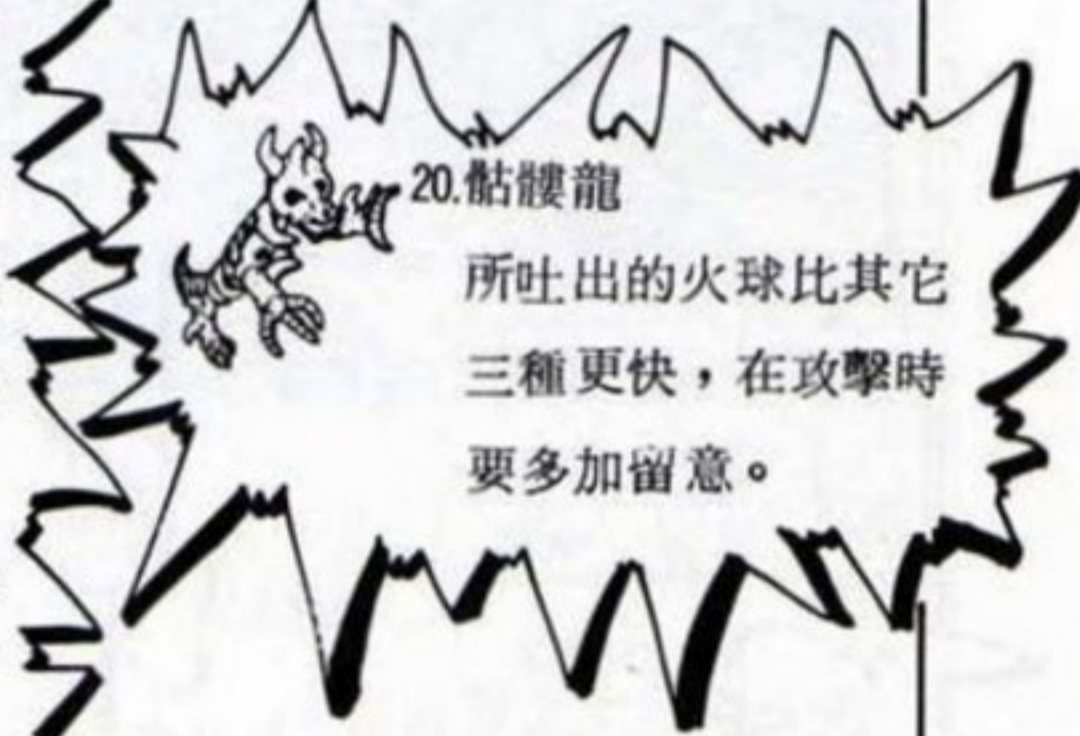 20.骷髏龍
所吐出的火球比其它
三種更快，在攻擊時
要多加留意。